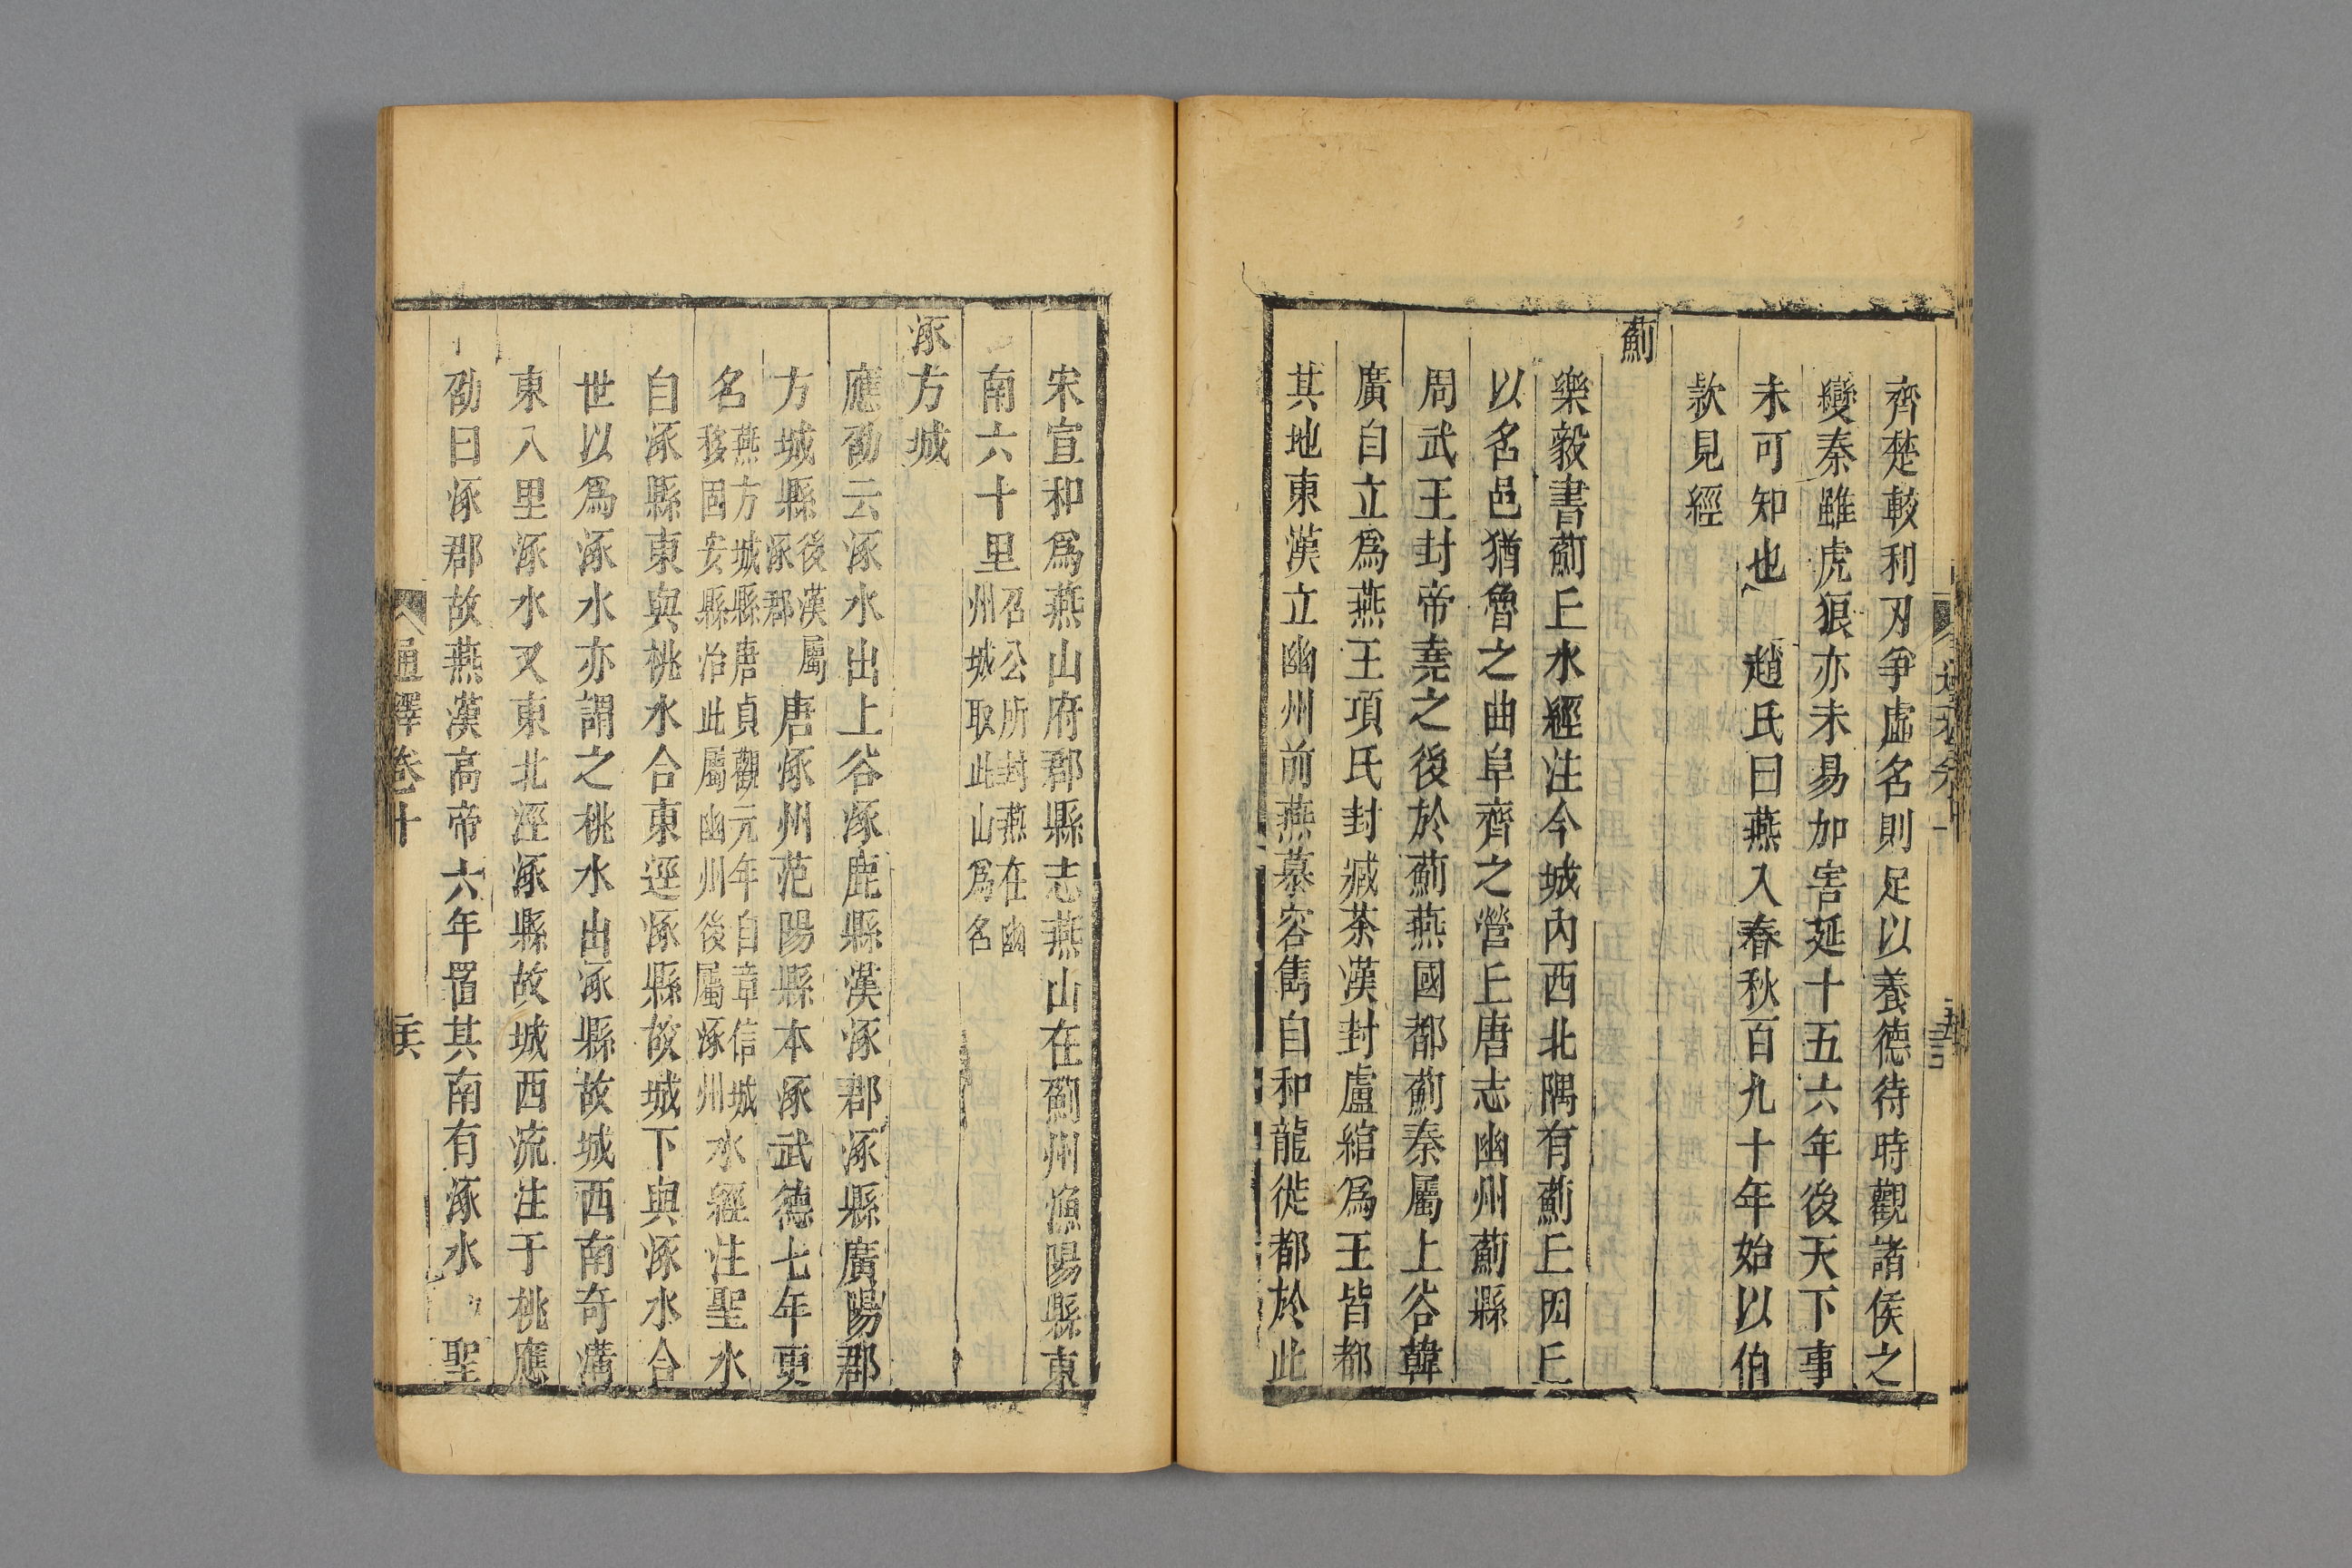 齊楚較利刃爭虛名則足以養德待時觀諸侯之
變秦雖虎狼亦未易加害延十五六年後天下事
未可知也　趙氏曰燕入春秋百九十年始以伯
款見經
薊
樂毅書薊丘水經注今城內西北隅有薊丘因丘
以名邑猶魯之曲阜齊之營丘唐志幽州薊縣
周武王封帝堯之後於薊燕國都薊秦屬上谷韓
廣自立爲燕王項氏封臧荼漢封盧綰爲王皆都
其地東漢立幽州前燕慕容雋自和龍徙都於此
宋宣和爲燕山府郡縣志燕山在薊州漁陽縣東
南六十里召公所封燕在幽州城取此山爲名
涿方城
應劭云涿水出上谷涿鹿縣漢涿郡涿縣廣陽郡
方城縣後漢屬涿郡　唐涿州范陽縣本涿武德七年更
名燕方城縣唐貞觀元年自章信城移固安縣治此屬幽州後屬涿州水經注聖水
自涿縣東與桃水合東逕涿縣故城下與涿水合
世以爲涿水亦謂之桃水出涿縣故城西南奇溝
東八里涿水又東北逕涿縣故城西流注于桃應
劭曰涿郡故燕漢高帝六年置其南有涿水　聖
通釋卷十